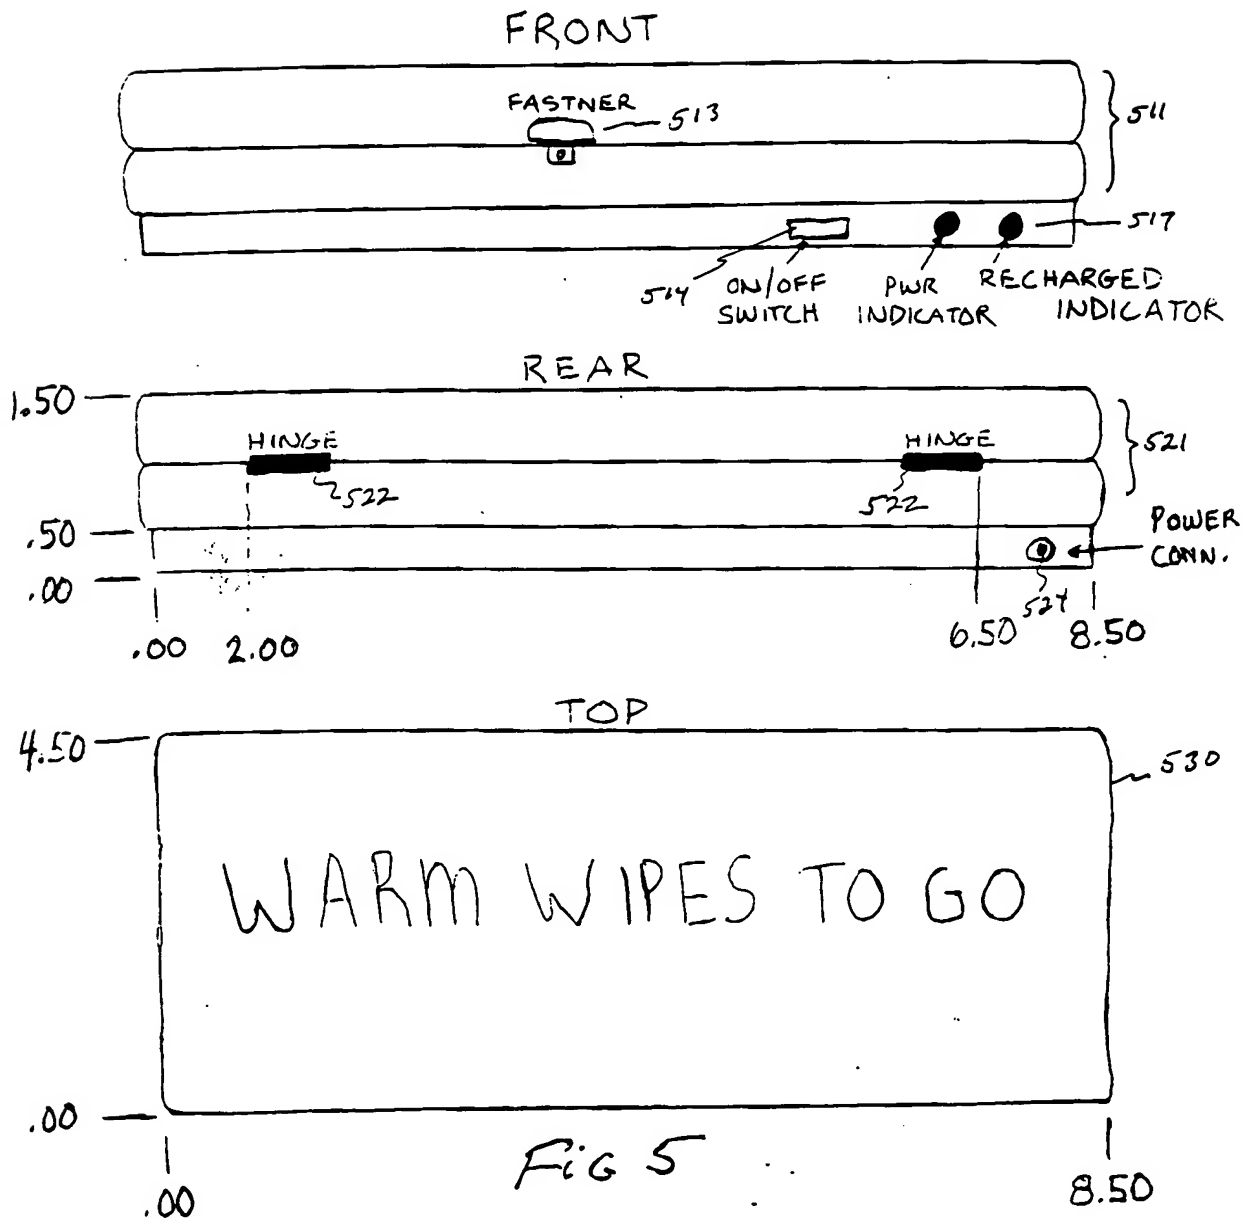 FRONT
FASTNER
513
511
517
514
ON/OFF
SWITCH
PWR
INDICATOR
RECHARGED
INDICATOR
REAR
1.50
HINGE
HINGE
521
522
522
.50
POWER
CONN.
.00
524
.00
2.00
6.50
8.50
TOP
4.50
530
WARM WIPES TO GO
.00
Fig 5
.00
8.50